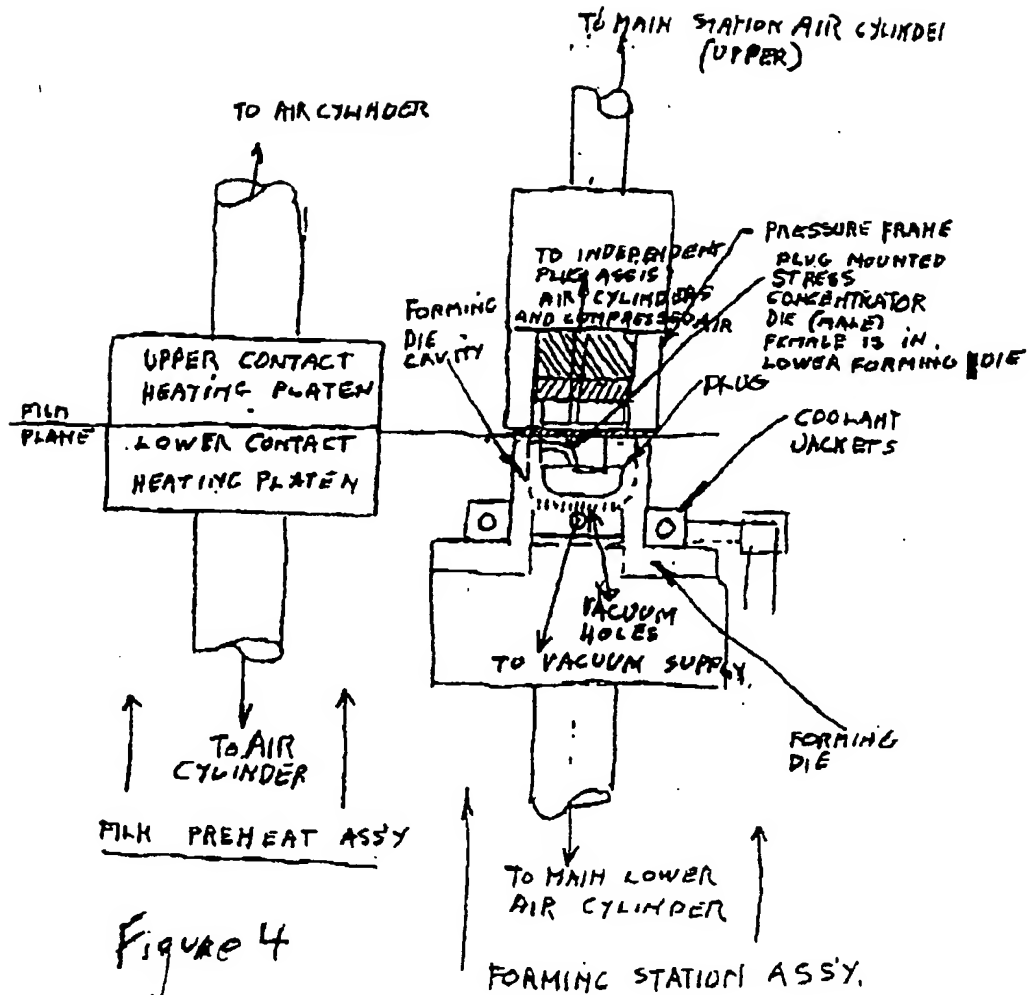 TO MAIN STATION AIR CYLINDEI
(UPPER)
TO AIR CYLINDER
PRESSURE FRAME
TO INDEPENDENT
PLUG ASSIS
AIR CYLINDERS
AND COMPRESSED AIR
PLUG MOUNTED
STRESS
CONCENTRATOR
DIE (MALE)
FEMALE IS IN
LOWER FORMING DIE
FORMING
DIE
CAVITY
PLUG
UPPER CONTACT
HEATING PLATEN
FILM
PLANE
LOWER CONTACT
HEATING PLATEN
COOLANT
JACKETS
VACUUM
HOLES
TO VACUUM SUPPLY
FORMING
DIE
TO AIR
CYLINDER
FILM PREHEAT ASS'Y
TO MAIN LOWER
AIR CYLINDER
Figure 4
FORMING STATION ASS'Y.